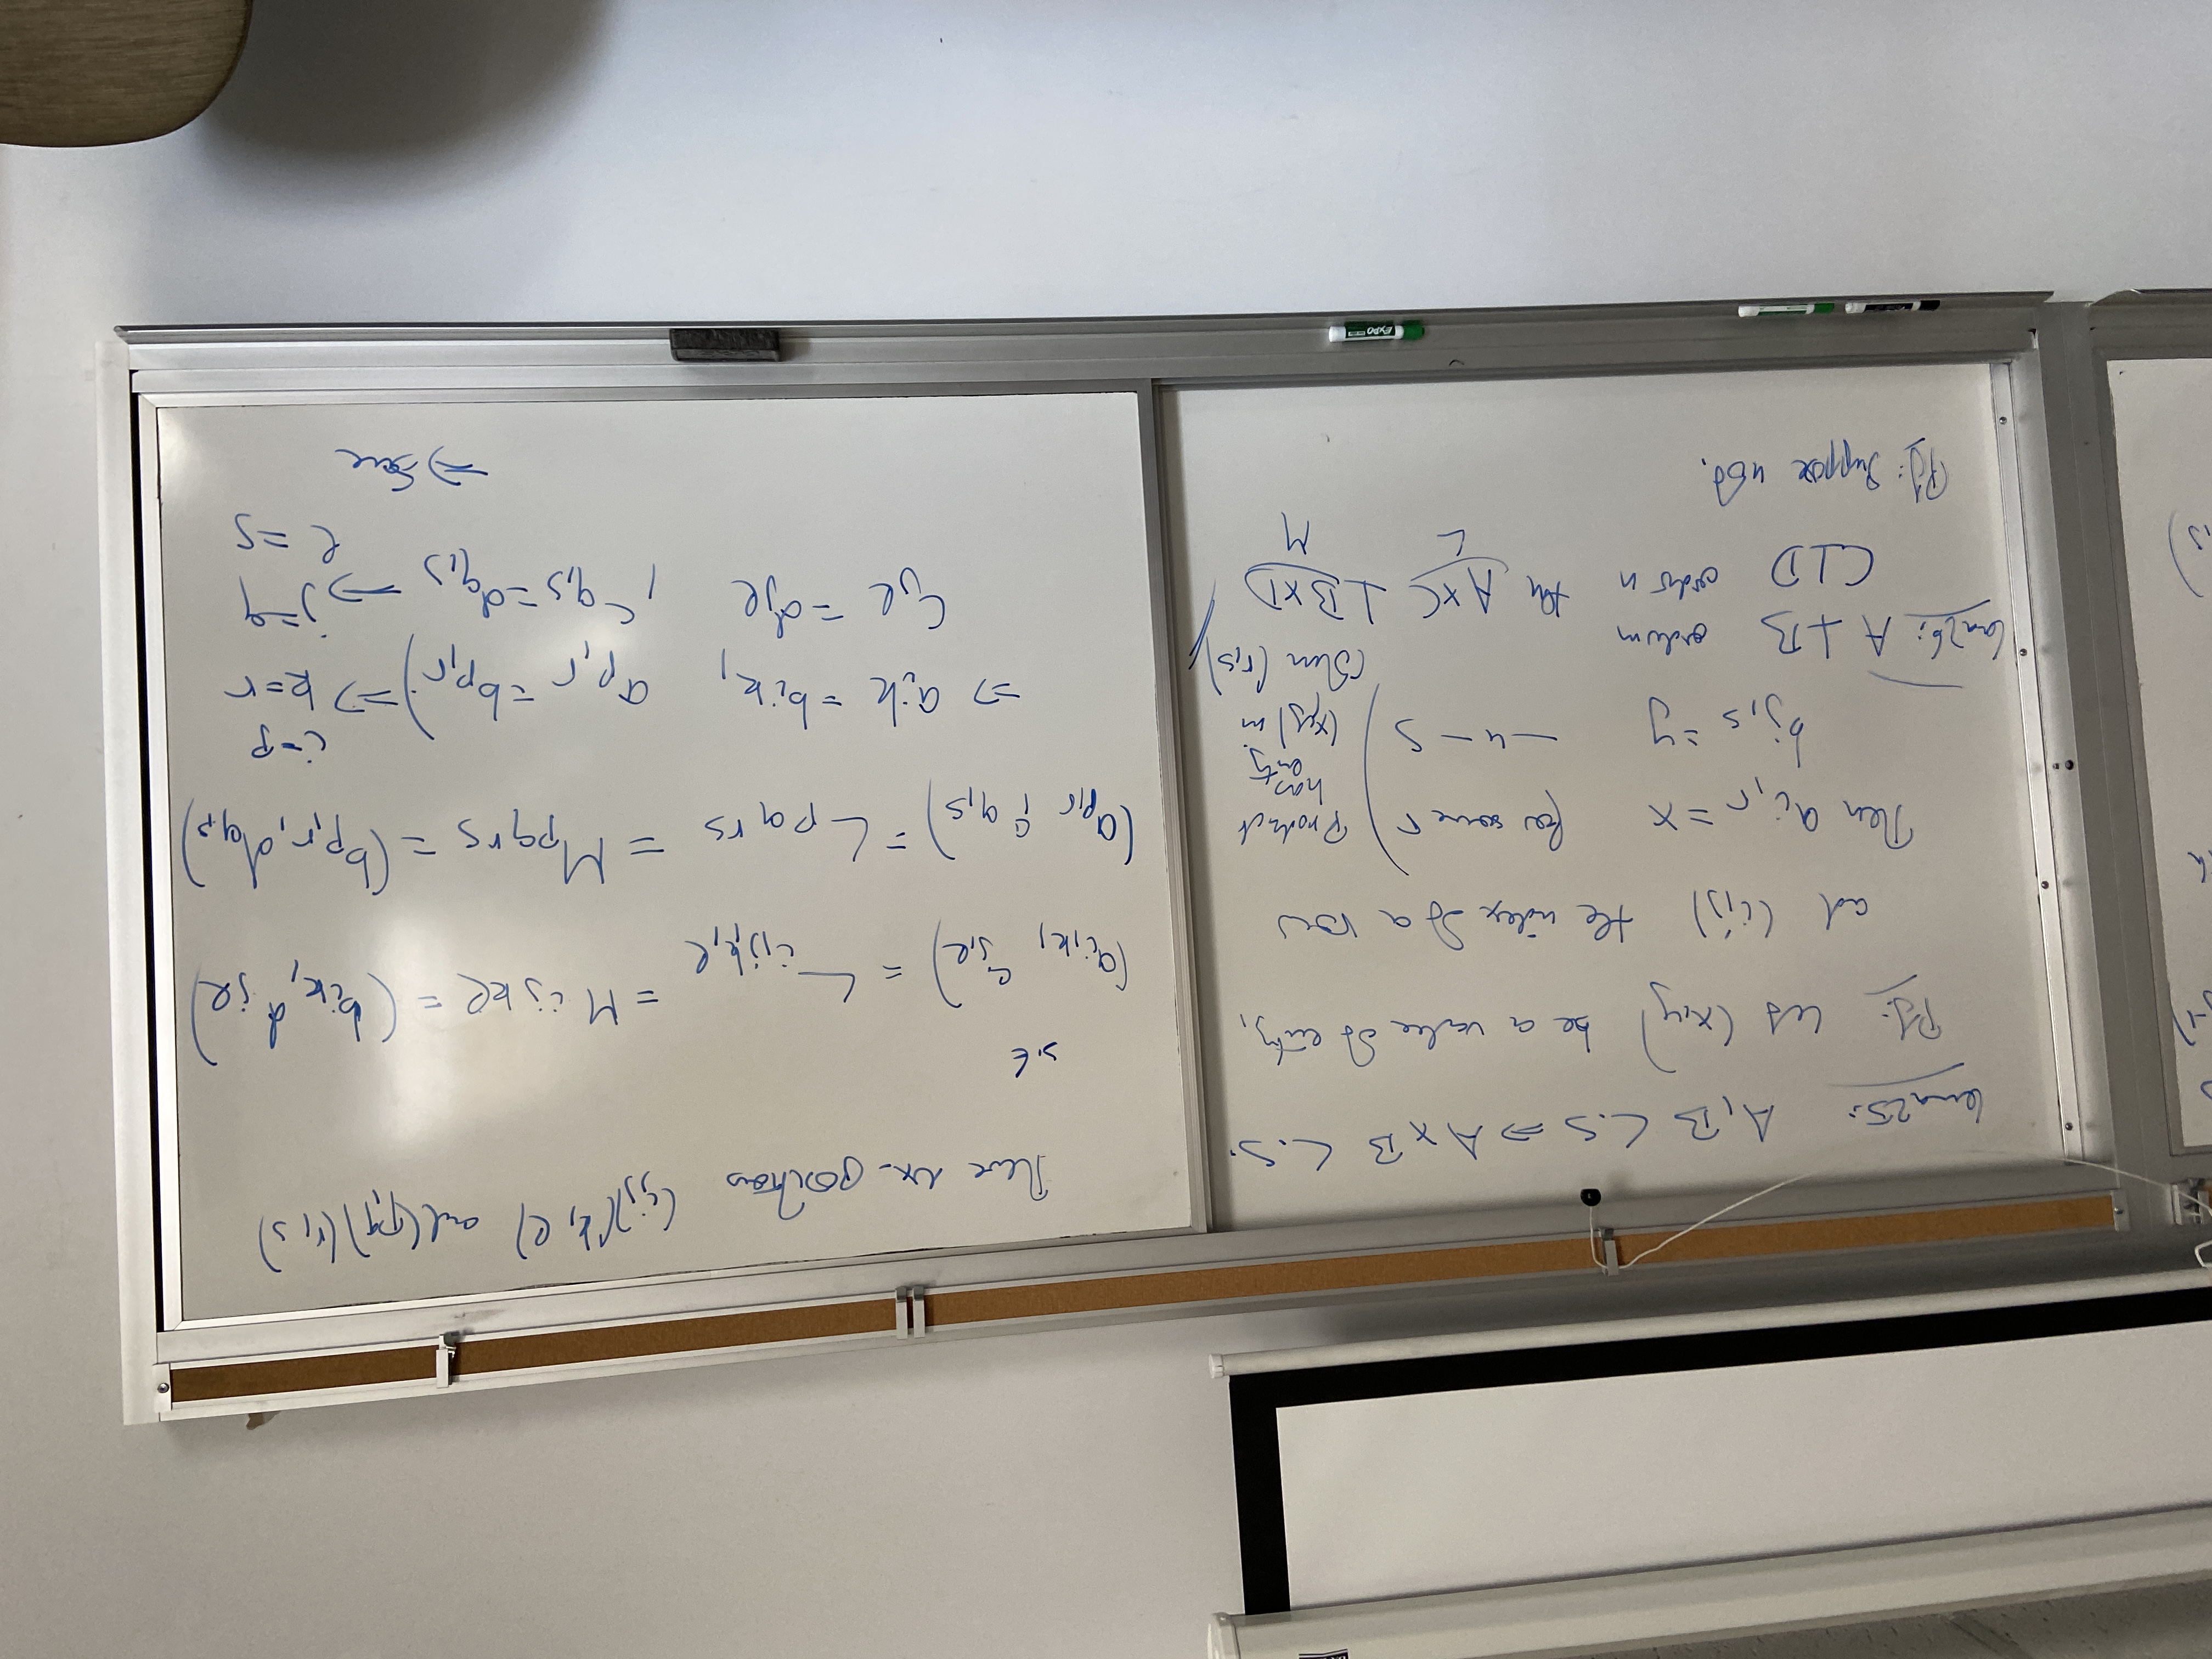 Lemma 25: A, B L.S ⇒ A × B L.S.
Pf: Let (x,y) be a value of entry,
and (i,j) the index of a row
Then a_{i,r} = x for some r
b_{j,s} = y —"— s
Product has entry (x,y) in column (r,s)
Lemma 26: A ⊥ B
C ⊥ D then A×C ⊥ B×D
L M
Pf: Suppose not.
There are positions (i,j)(k,l) and (p,q)(r,s)
s.t.
(a_{i,k}, c_{j,l}) = L_{i,j,k,l} = M_{ijkl} = (b_{i,k}, d_{jl})
(a_{p,r}, c_{q,s}) = L_{pqrs} = M_{pqrs} = (b_{p,r}, d_{q,s})
⇒ a_{ik} = b_{ik}, a_{p,r} = b_{p,r}) ⇒ i=p k=r
c_{jl} = d_{jl}, c_{q,s} = d_{q,s} ⇒ j=q l=s
⇒ Same
EXPO